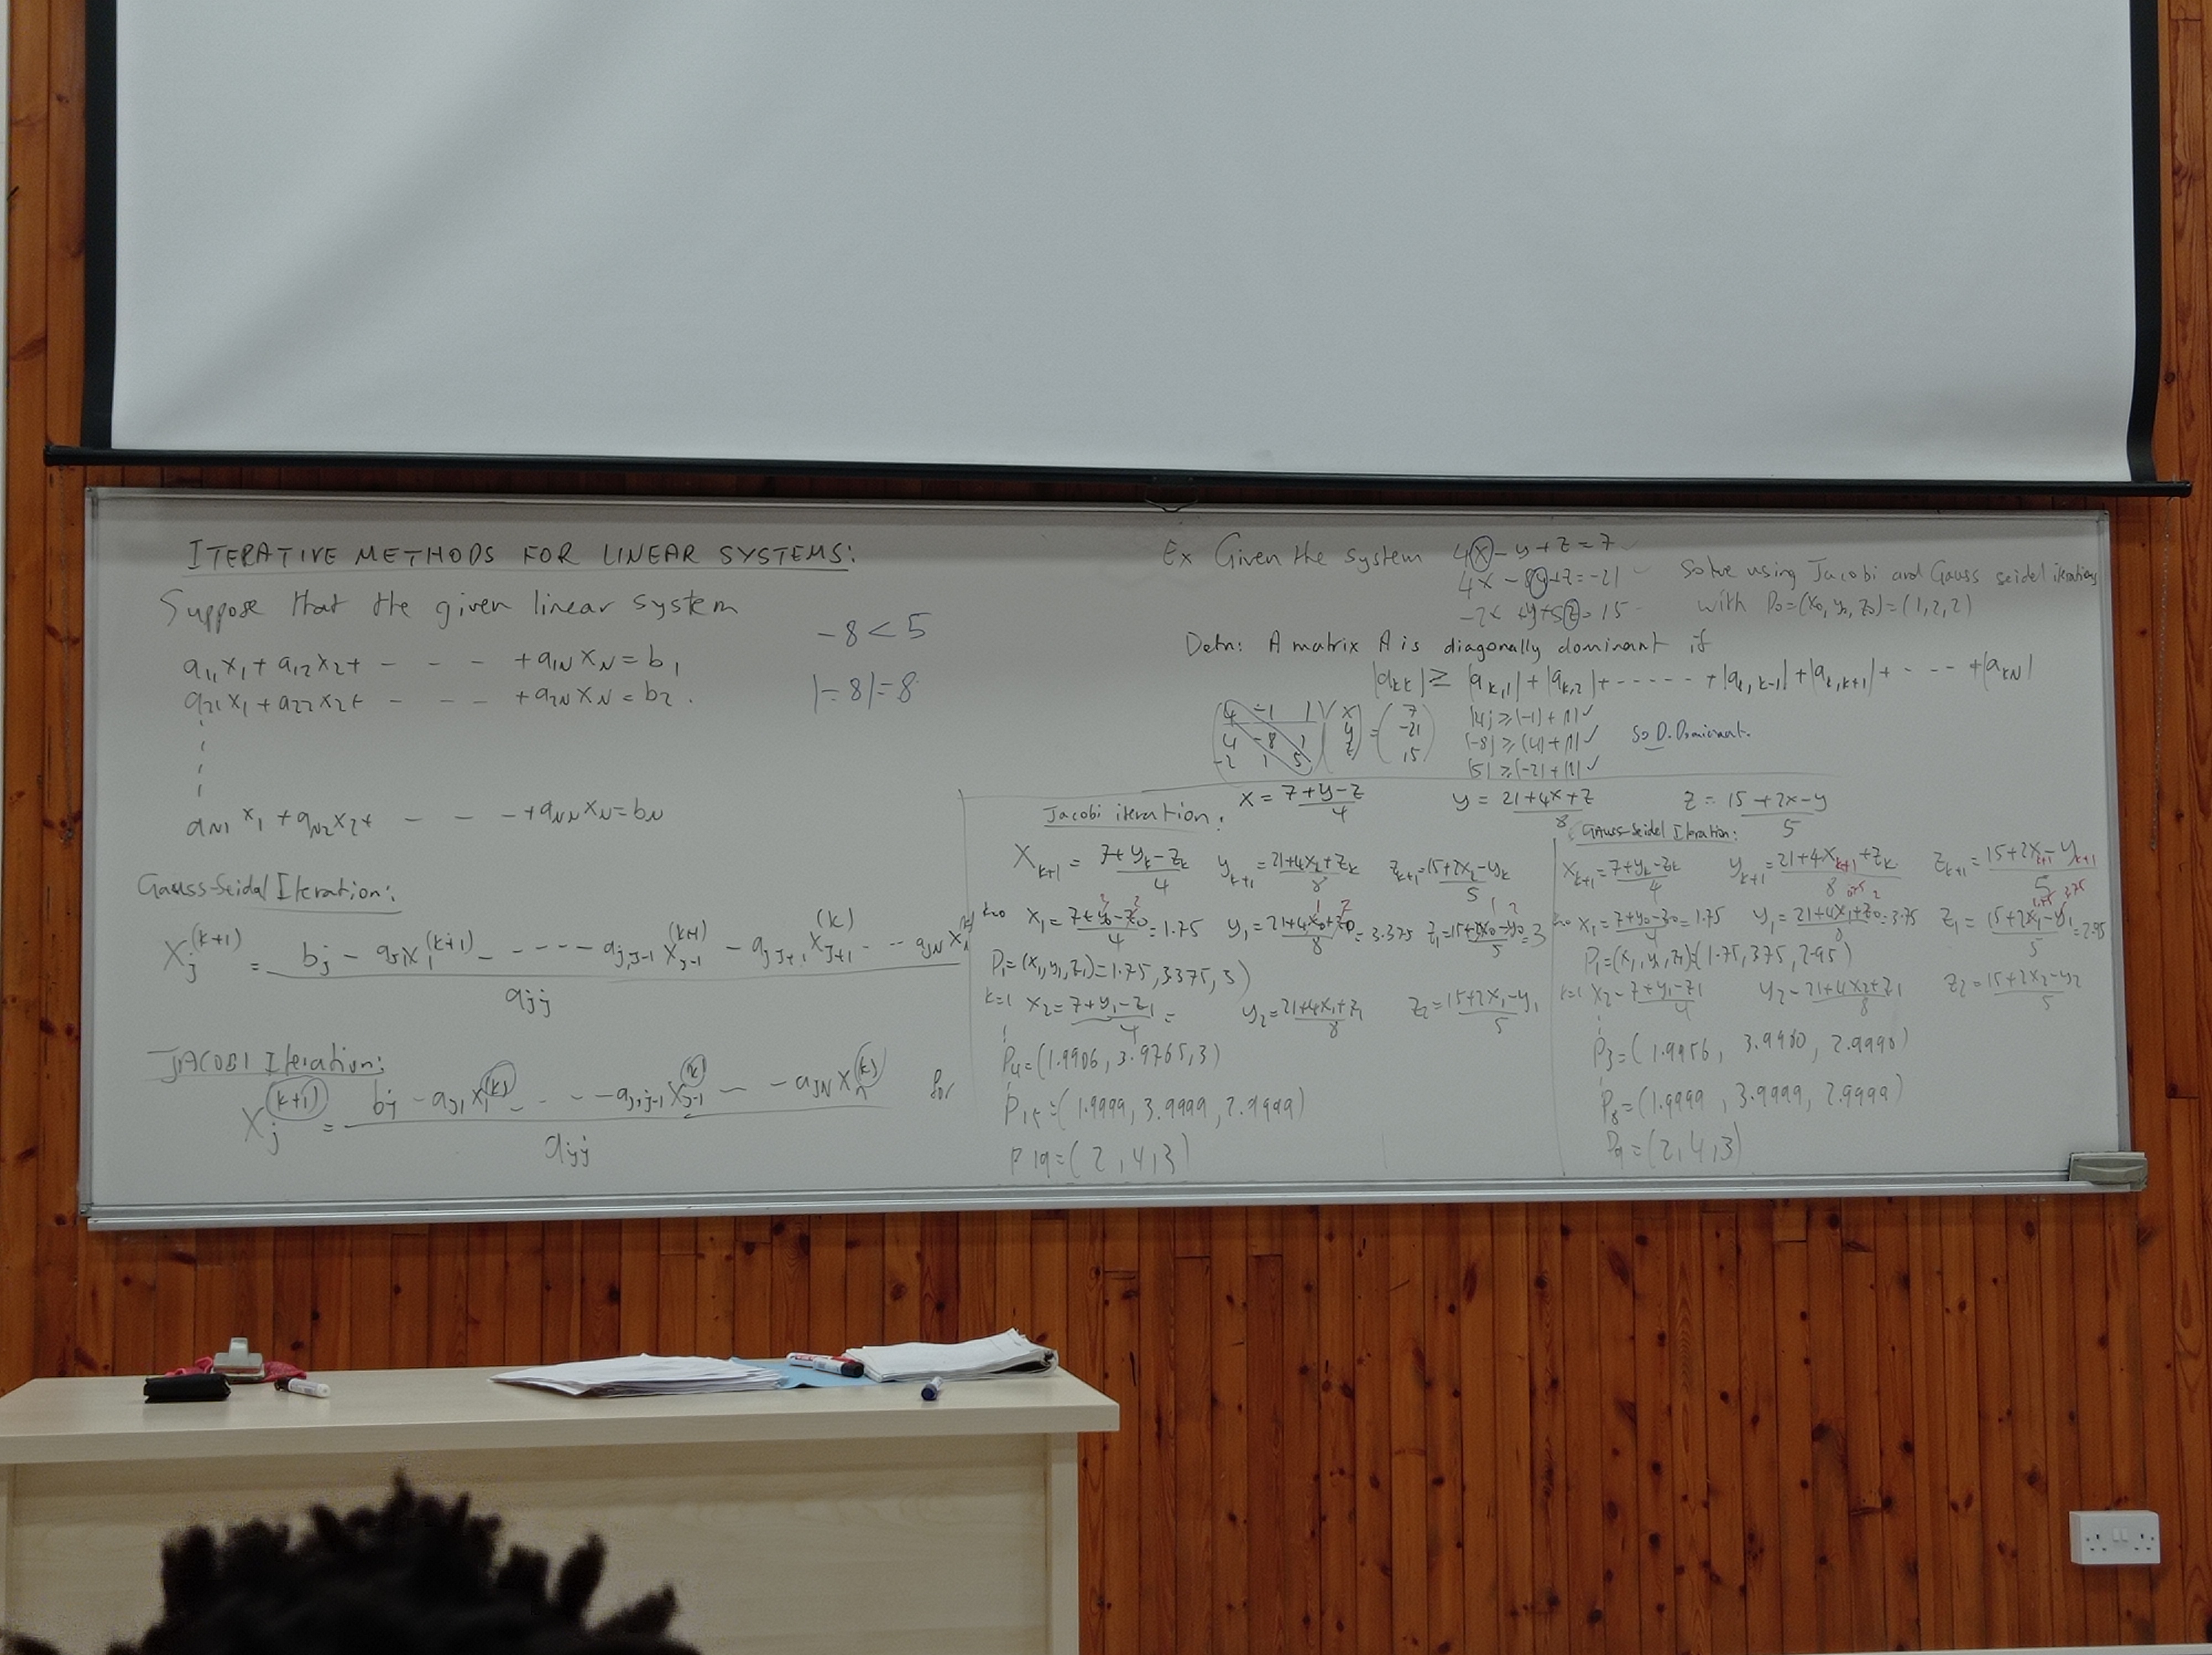 ITERATIVE METHODS FOR LINEAR SYSTEMS:
Suppose that the given linear system
a₁₁x₁ + a₁₂x₂ + - - - + a₁N xN = b₁
a₂₁x₁ + a₂₂x₂ + - - - + a₂N xN = b₂.
aN₁ x₁ + aN₂x₂ + - - - + aNN xN = bN
-8 < 5
|-8| = 8
Gauss-Seidal Iteration:
Xj^(k+1) = (bj - aj1 x1^(k+1) - ---- aj,j-1 x j-1^(k+1) - aj j+1 x j+1^(k) - -- ajN xN^(k)) / ajj
JACOBI Iteration:
Xj^(k+1) = (bj - aj1 x1^(k) - - - - aj,j-1 x j-1^(k) - - - ajN xn^(k)) / ajj for
Ex Given the system 4x - y + z = 7
4x - 8y + z = -21
-2x + y + 5z = 15
Solve using Jacobi and Gauss seidel iterations
with P₀ = (x₀, y₀, z₀) = (1, 2, 2)
Defn: A matrix A is diagonally dominant if
|akk| ≥ |ak,1| + |ak,2| + ------ + |ak,k-1| + |ak,k+1| + ---- + |akN|
( 4 -1 1 ) ( x ) = ( 7 ) |4| ≥ |-1| + |1| ✓
( 4 -8 1 ) ( y ) ( -21 ) |-8| ≥ |4| + |1| ✓ So D. Dominant.
( -2 1 5 ) ( z ) ( 15 ) |5| ≥ |-2| + |1| ✓
x = (7 + y - z)/4 y = (21 + 4x + z)/8 z = (15 + 2x - y)/5
Jacobi iteration:
Xk+1 = (7 + yk - zk)/4 yk+1 = (21 + 4xk + zk)/8 zk+1 = (15 + 2xk - yk)/5
k=0 x₁ = (7 + y₀ - z₀)/4 = 1.75 y₁ = (21 + 4x₀ + z₀)/8 = 3.375 z₁ = (15 + 2x₀ - y₀)/5 = 3
P₁ = (x₁, y₁, z₁) = 1.75, 3.375, 3)
k=1 x₂ = (7 + y₁ - z₁)/4 = y₂ = (21 + 4x₁ + z₁)/8 z₂ = (15 + 2x₁ - y₁)/5
P₄ = (1.9906, 3.9765, 3)
P₁₅ = (1.9999, 3.9999, 2.9999)
P₁₉ = (2, 4, 3)
Gauss-Seidel Iteration:
Xk+1 = (7 + yk - zk)/4 yk+1 = (21 + 4xk+1 + zk)/8 zk+1 = (15 + 2xk+1 - yk+1)/5
k=0 x₁ = (7 + y₀ - z₀)/4 = 1.75 y₁ = (21 + 4x₁ + z₀)/8 = 3.75 z₁ = (15 + 2x₁ - y₁)/5 = 2.95
P₁ = (x₁, y₁, z₁) = (1.75, 3.75, 2.95)
k=1 x₂ = (7 + y₁ - z₁)/4 y₂ = (21 + 4x₂ + z₁)/8 z₂ = (15 + 2x₂ - y₂)/5
P₃ = (1.9956, 3.9980, 2.9990)
P₈ = (1.9999, 3.9999, 2.9999)
P₉ = (2, 4, 3)